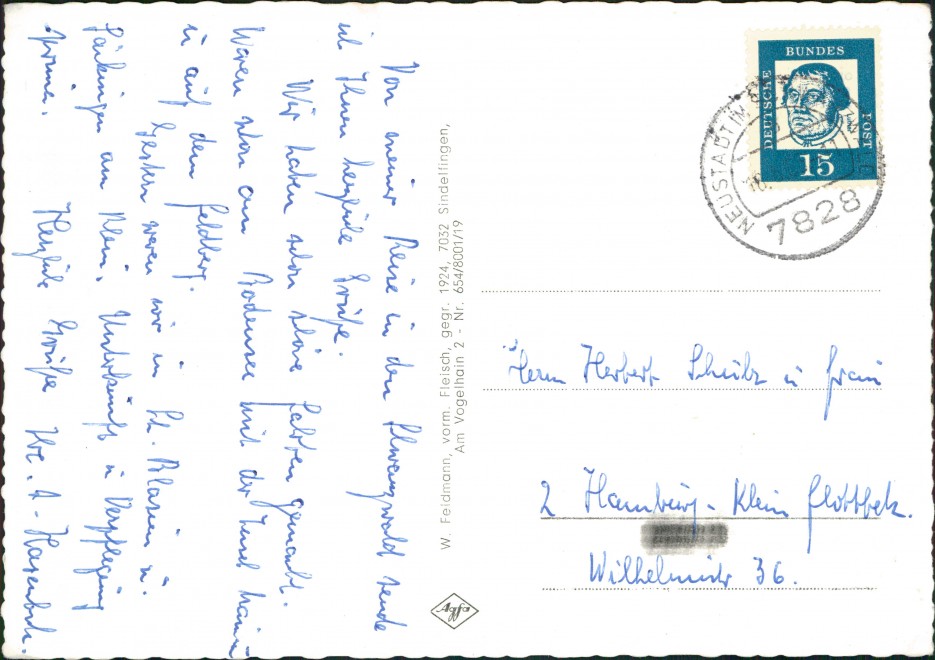 Von meiner Reise in den Schwarzwald sende
ich Ihnen herzliche Grüße.
Wir haben schon schöne Fahrten gemacht.
Waren schon am Bodensee mit der Insel Mainau
u auf dem Feldberg.
Gestern waren wir in St. Blasien u.
Säckingen am Rhein. Unterkunft u Verpflegung
prima. Herzliche Grüße Ihre A.
W. Feldmann, vorm. Fleisch, gegr. 1924, 7032 Sindelfingen,
Am Vogelhain 2 - Nr. 654/8001/19
Agfa
DEUTSCHE
BUNDES
POST
15
NEUSTADT IM
7828
Herrn Herbert Scholz u Frau
2 Hamburg-Klein Flottbek.
Wilhelmistr 36.